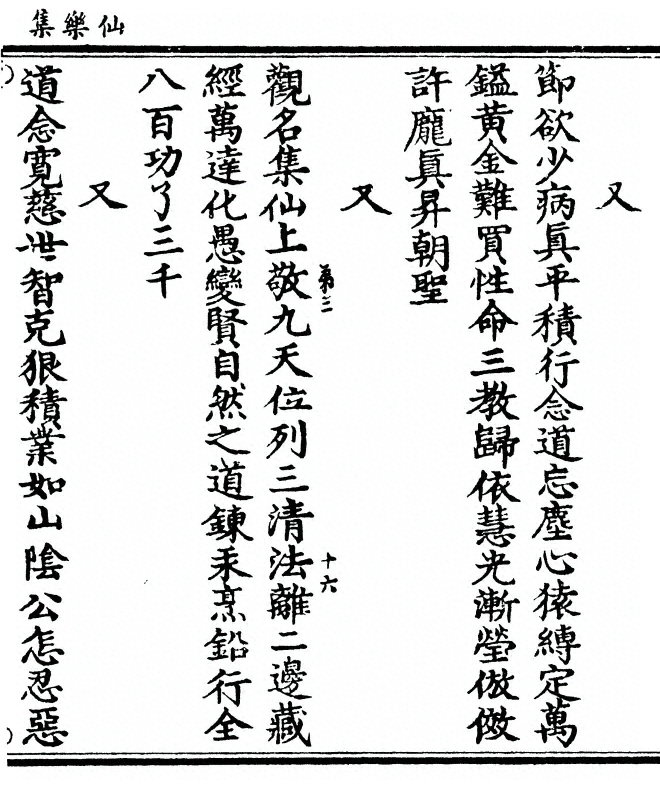 仙樂集
又
節欲少病眞平積行念道忘塵心猿縛定萬
鎰黃金難買性命三教歸依慧光漸瑩倣傚
許龐眞昇朝聖
又
觀名集仙上敬九天位列三清法離二邊藏
第三
十六
經萬達化愚變賢自然之道鍊汞烹鉛行全
八百功了三千
又
道念寬慈世智克狠積業如山陰公怎忍惡